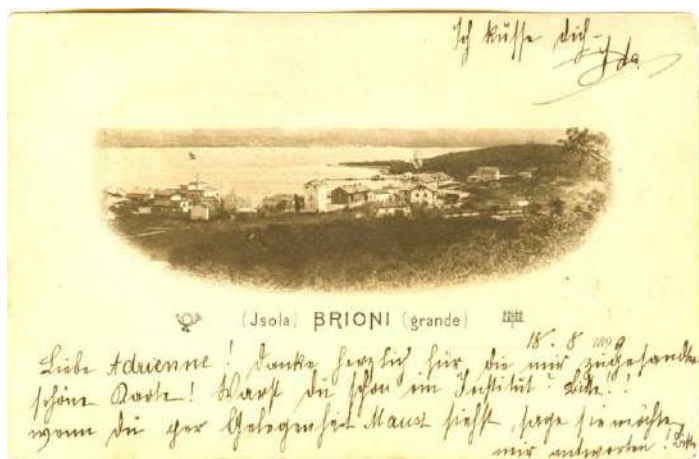 Ich küsse dich
Ida
(Jsola) BRIONI (grande)
18. 8 1899
Liebe Adrienne! Danke herzlich für die mir zugesandte
schöne Karte! Warst du schon im Institut? Bitte!!
wenn du per Gelegenheit siehst, sage sie möchte
mir antworten! Bitte